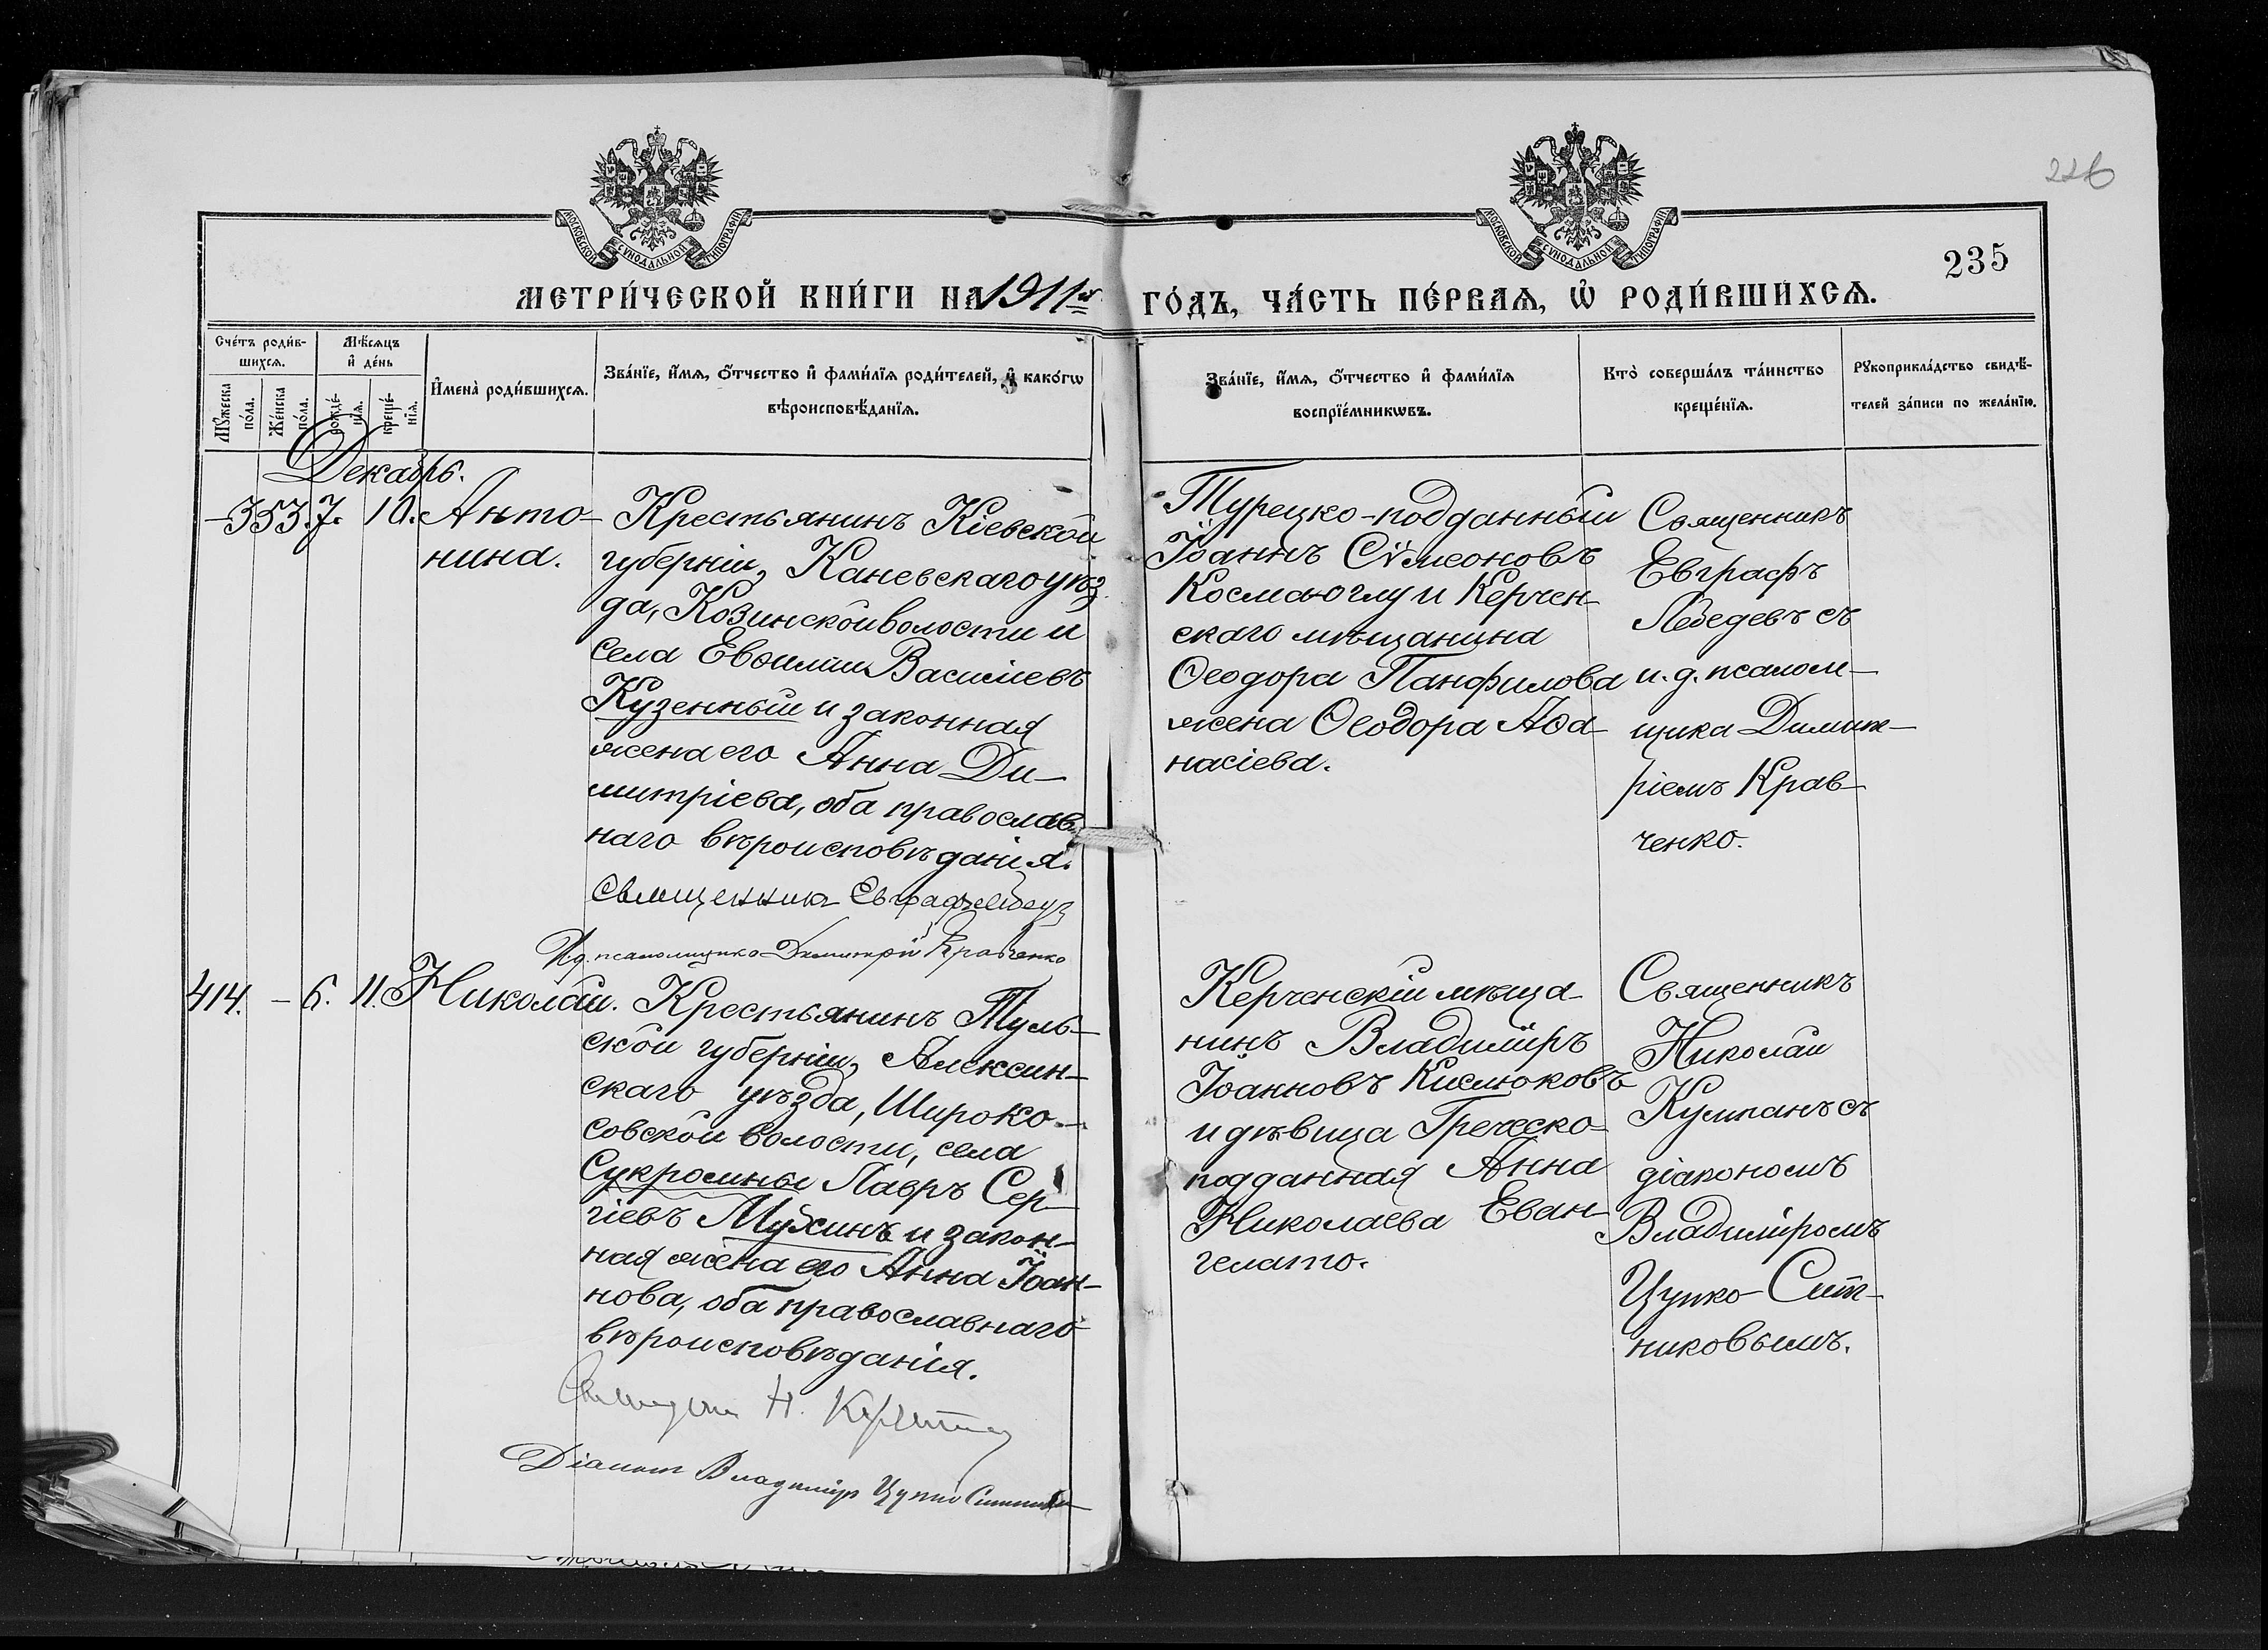 226
235
МОСКОВСКОЙ СУНОДАЛЬНОЙ ТИПОГРАФІИ
МОСКОВСКОЙ СУНОДАЛЬНОЙ ТИПОГРАФІИ
МЕТРИ́ЧЕСКОЙ КНИ́ГИ НА 1911й ГО́ДЪ, ЧА́СТЬ ПЕ́РВАѦ, Ѡ҆ РОДИ́ВШИХСѦ.
Сче́тъ роди́в-
шихсѧ.
Мѣ́сѧцъ
и҆ де́нь
Мꙋ́жеска
по́ла.
Же́нска
по́ла.
рожде́-
нїѧ.
креще́-
нїѧ.
И҆мена̀ роди́вшихсѧ.
Зва́нїе, и҆́мѧ, ѻ҆́тчество и҆ фами́лїѧ роди́телей, и҆ како́гѡ
вѣроисповѣ́данїѧ.
Зва́нїе, и҆́мѧ, ѻ҆́тчество и҆ фами́лїѧ
воспрїе́мникѡвъ.
Кто̀ соверша́лъ та́инство
креще́нїѧ.
Рꙋкоприкла́дство свидѣ́-
телей за́писи по жела́нїю.
Декабрь.
– 353. 7. 10. Анто-
нина.
Крестьянинъ Кіевской
губерніи, Каневскаго уѣз-
да, Козинской волости и
села Евѳимій Василіевъ
Кузенный и законная
жена его Анна Ди-
митріева, оба православ-
наго вѣроисповѣданія.
Священникъ Евграфъ Лебедевъ
И.д. псаломщика Димитрій Кравченко
Турецко-подданный
Іоаннъ Сѵмеоновъ
Космаоглу и Керчен-
скаго мѣщанина
Ѳеодора Панфилова
жена Ѳеодора Аѳа-
насіева.
Священникъ
Евграфъ
Лебедевъ съ
и. д. псалом-
щика Димит-
ріемъ Крав-
ченко.
414. – 6. 11. Николай.
Крестьянинъ Туль-
ской губерніи, Алексин-
скаго уѣзда, Широко-
совской волости, села
Сукромны Лавръ Сер-
гіевъ Мухинъ и закон-
ная жена его Анна Іоан-
нова, оба православнаго
вѣроисповѣданія.
Священникъ Н.
Діаконъ Владиміръ Цупко Ситников
Керченскій мѣща-
нинъ Владиміръ
Іоанновъ Кислюковъ
и дѣвица Греческо-
подданная Анна
Николаева Еван-
гелато.
Священникъ
Николай
Кулпанъ съ
діакономъ
Владиміромъ
Цупко-Сит-
никовымъ.